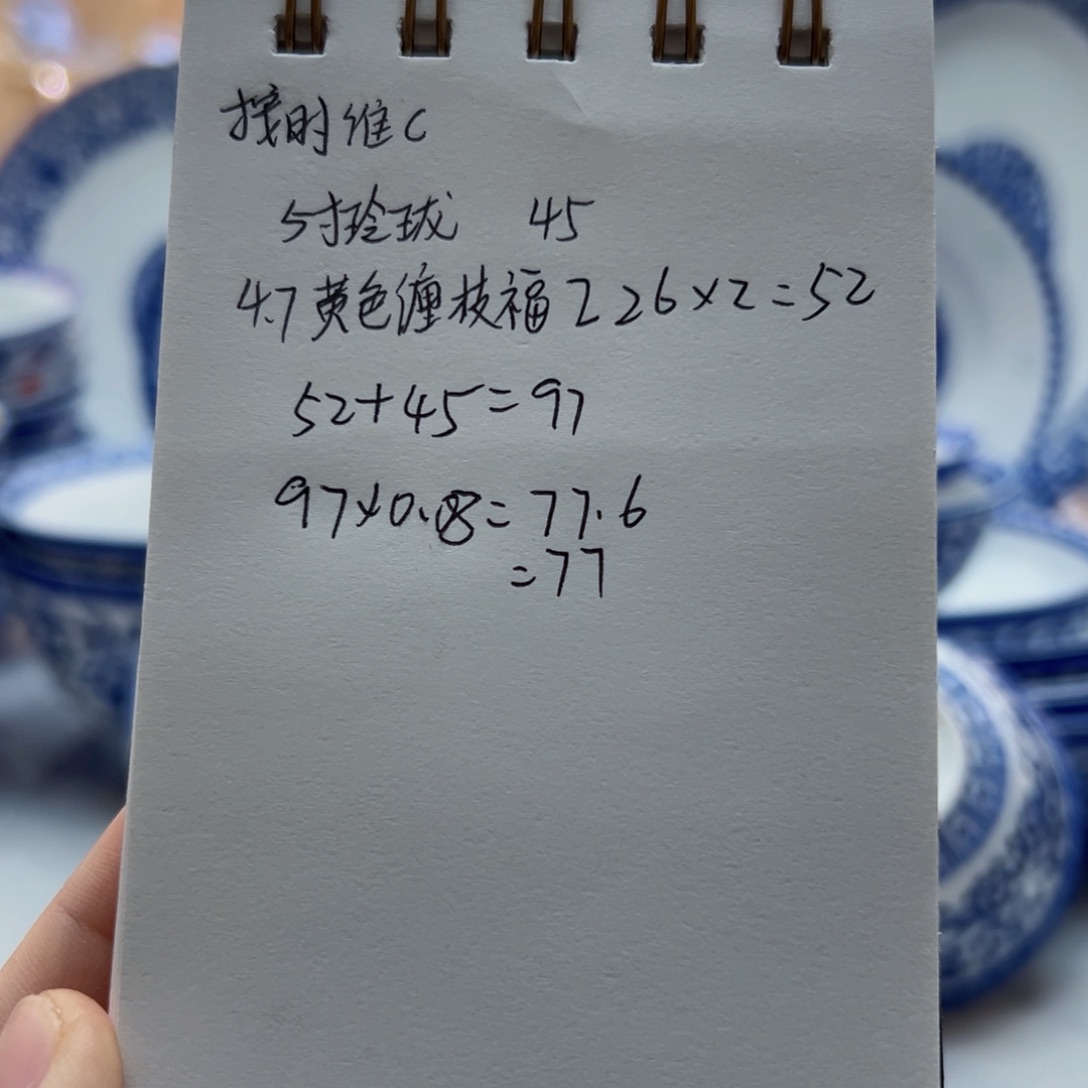 按时维C
5寸玲珑 45
4.7黄色缠枝福 2 26×2=52
52+45=97
97×0.8=77.6
=77